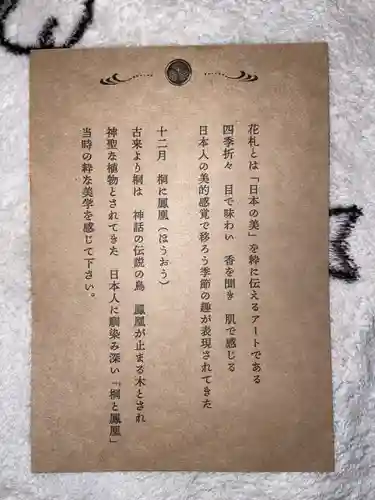 花札とは「日本の美」を粋に伝えるアートである
四季折々　目で味わい　香を聞き　肌で感じる
日本人の美的感覚で移ろう季節の趣が表現されてきた
十二月　桐に鳳凰（ほうおう）
古来より桐は　神話の伝説の鳥　鳳凰が止まる木とされ
神聖な植物とされてきた　日本人に馴染み深い「桐と鳳凰」
当時の粋な美学を感じて下さい。